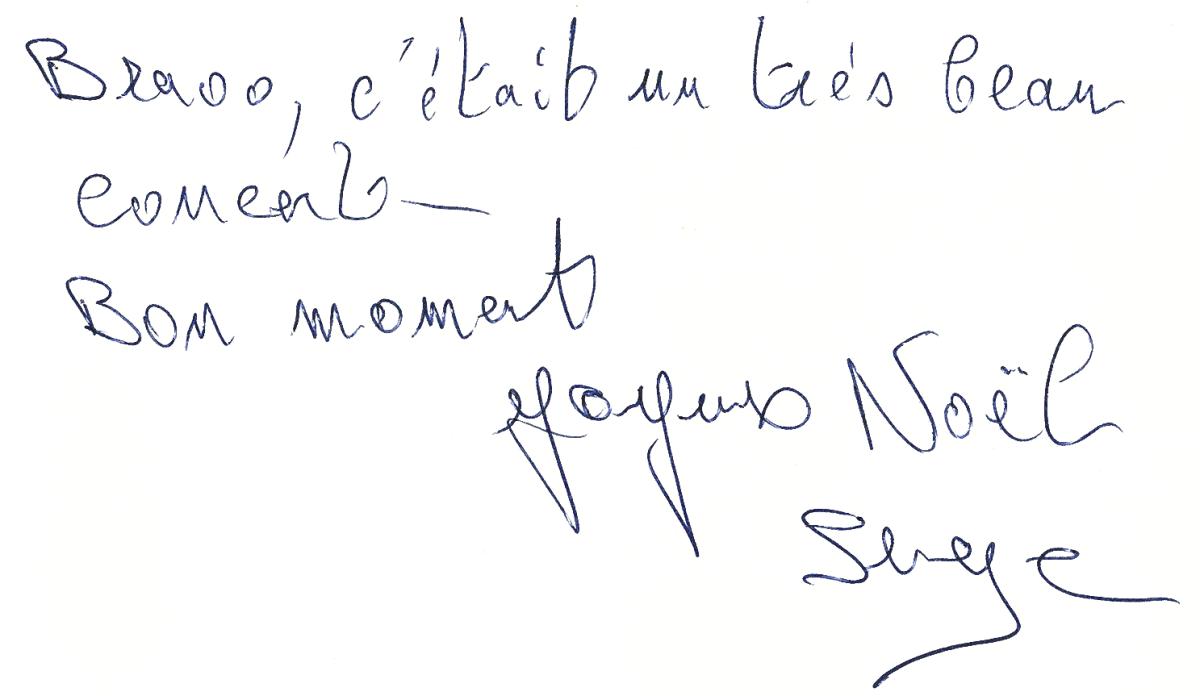 Bravo, c'était un trés beau
concert
Bon moment
Joyeux Noël
Serge